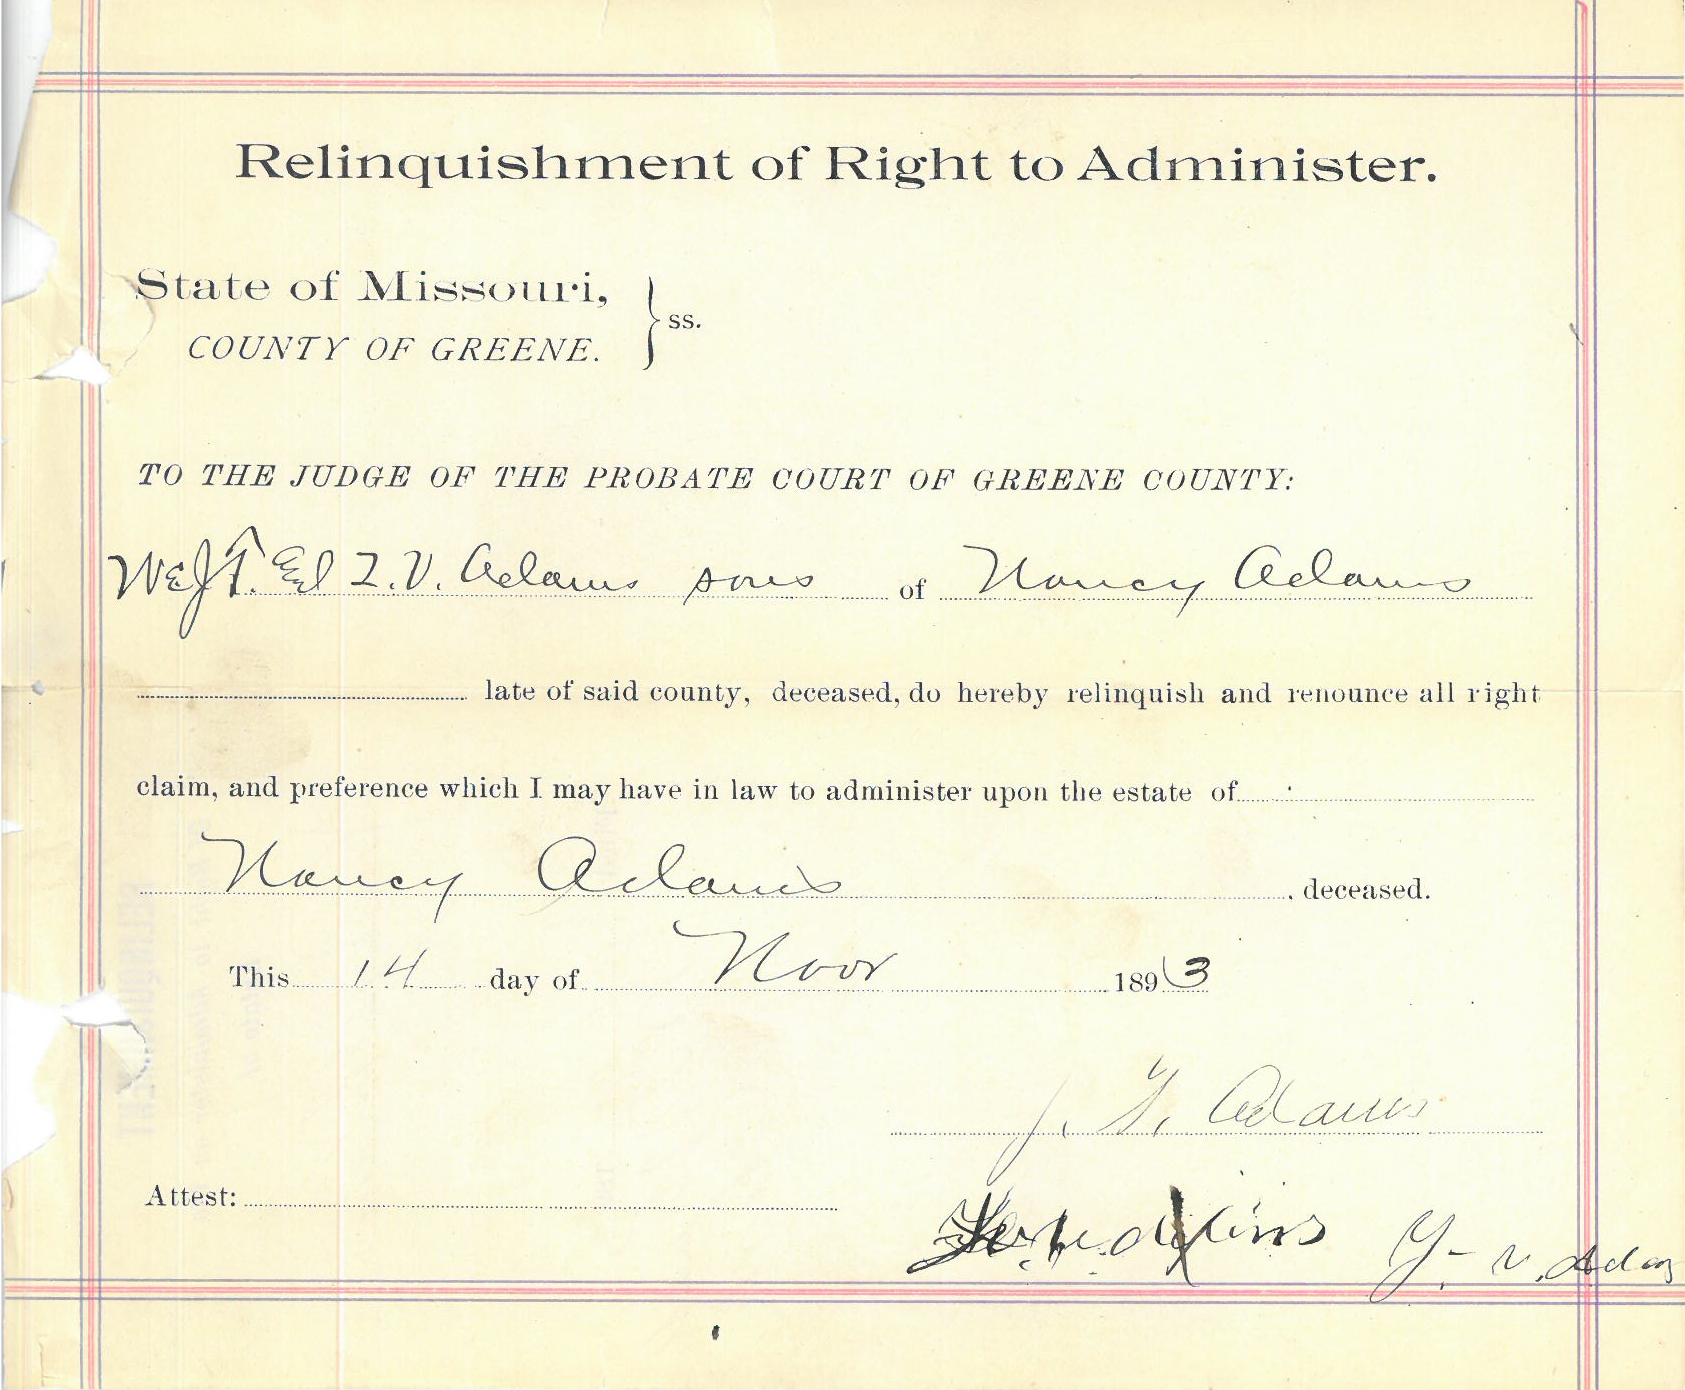 Relinquishment of Right to Administer.
State of Missouri,
COUNTY OF GREENE.
ss.
TO THE JUDGE OF THE PROBATE COURT OF GREENE COUNTY:
We J T. Adams sons of Nancy Adams
late of said county, deceased, do hereby relinquish and renounce all right
claim, and preference which I may have in law to administer upon the estate of
Nancy Adams, deceased.
This 14 day of Novr 1893
J. T. Adams
Attest: